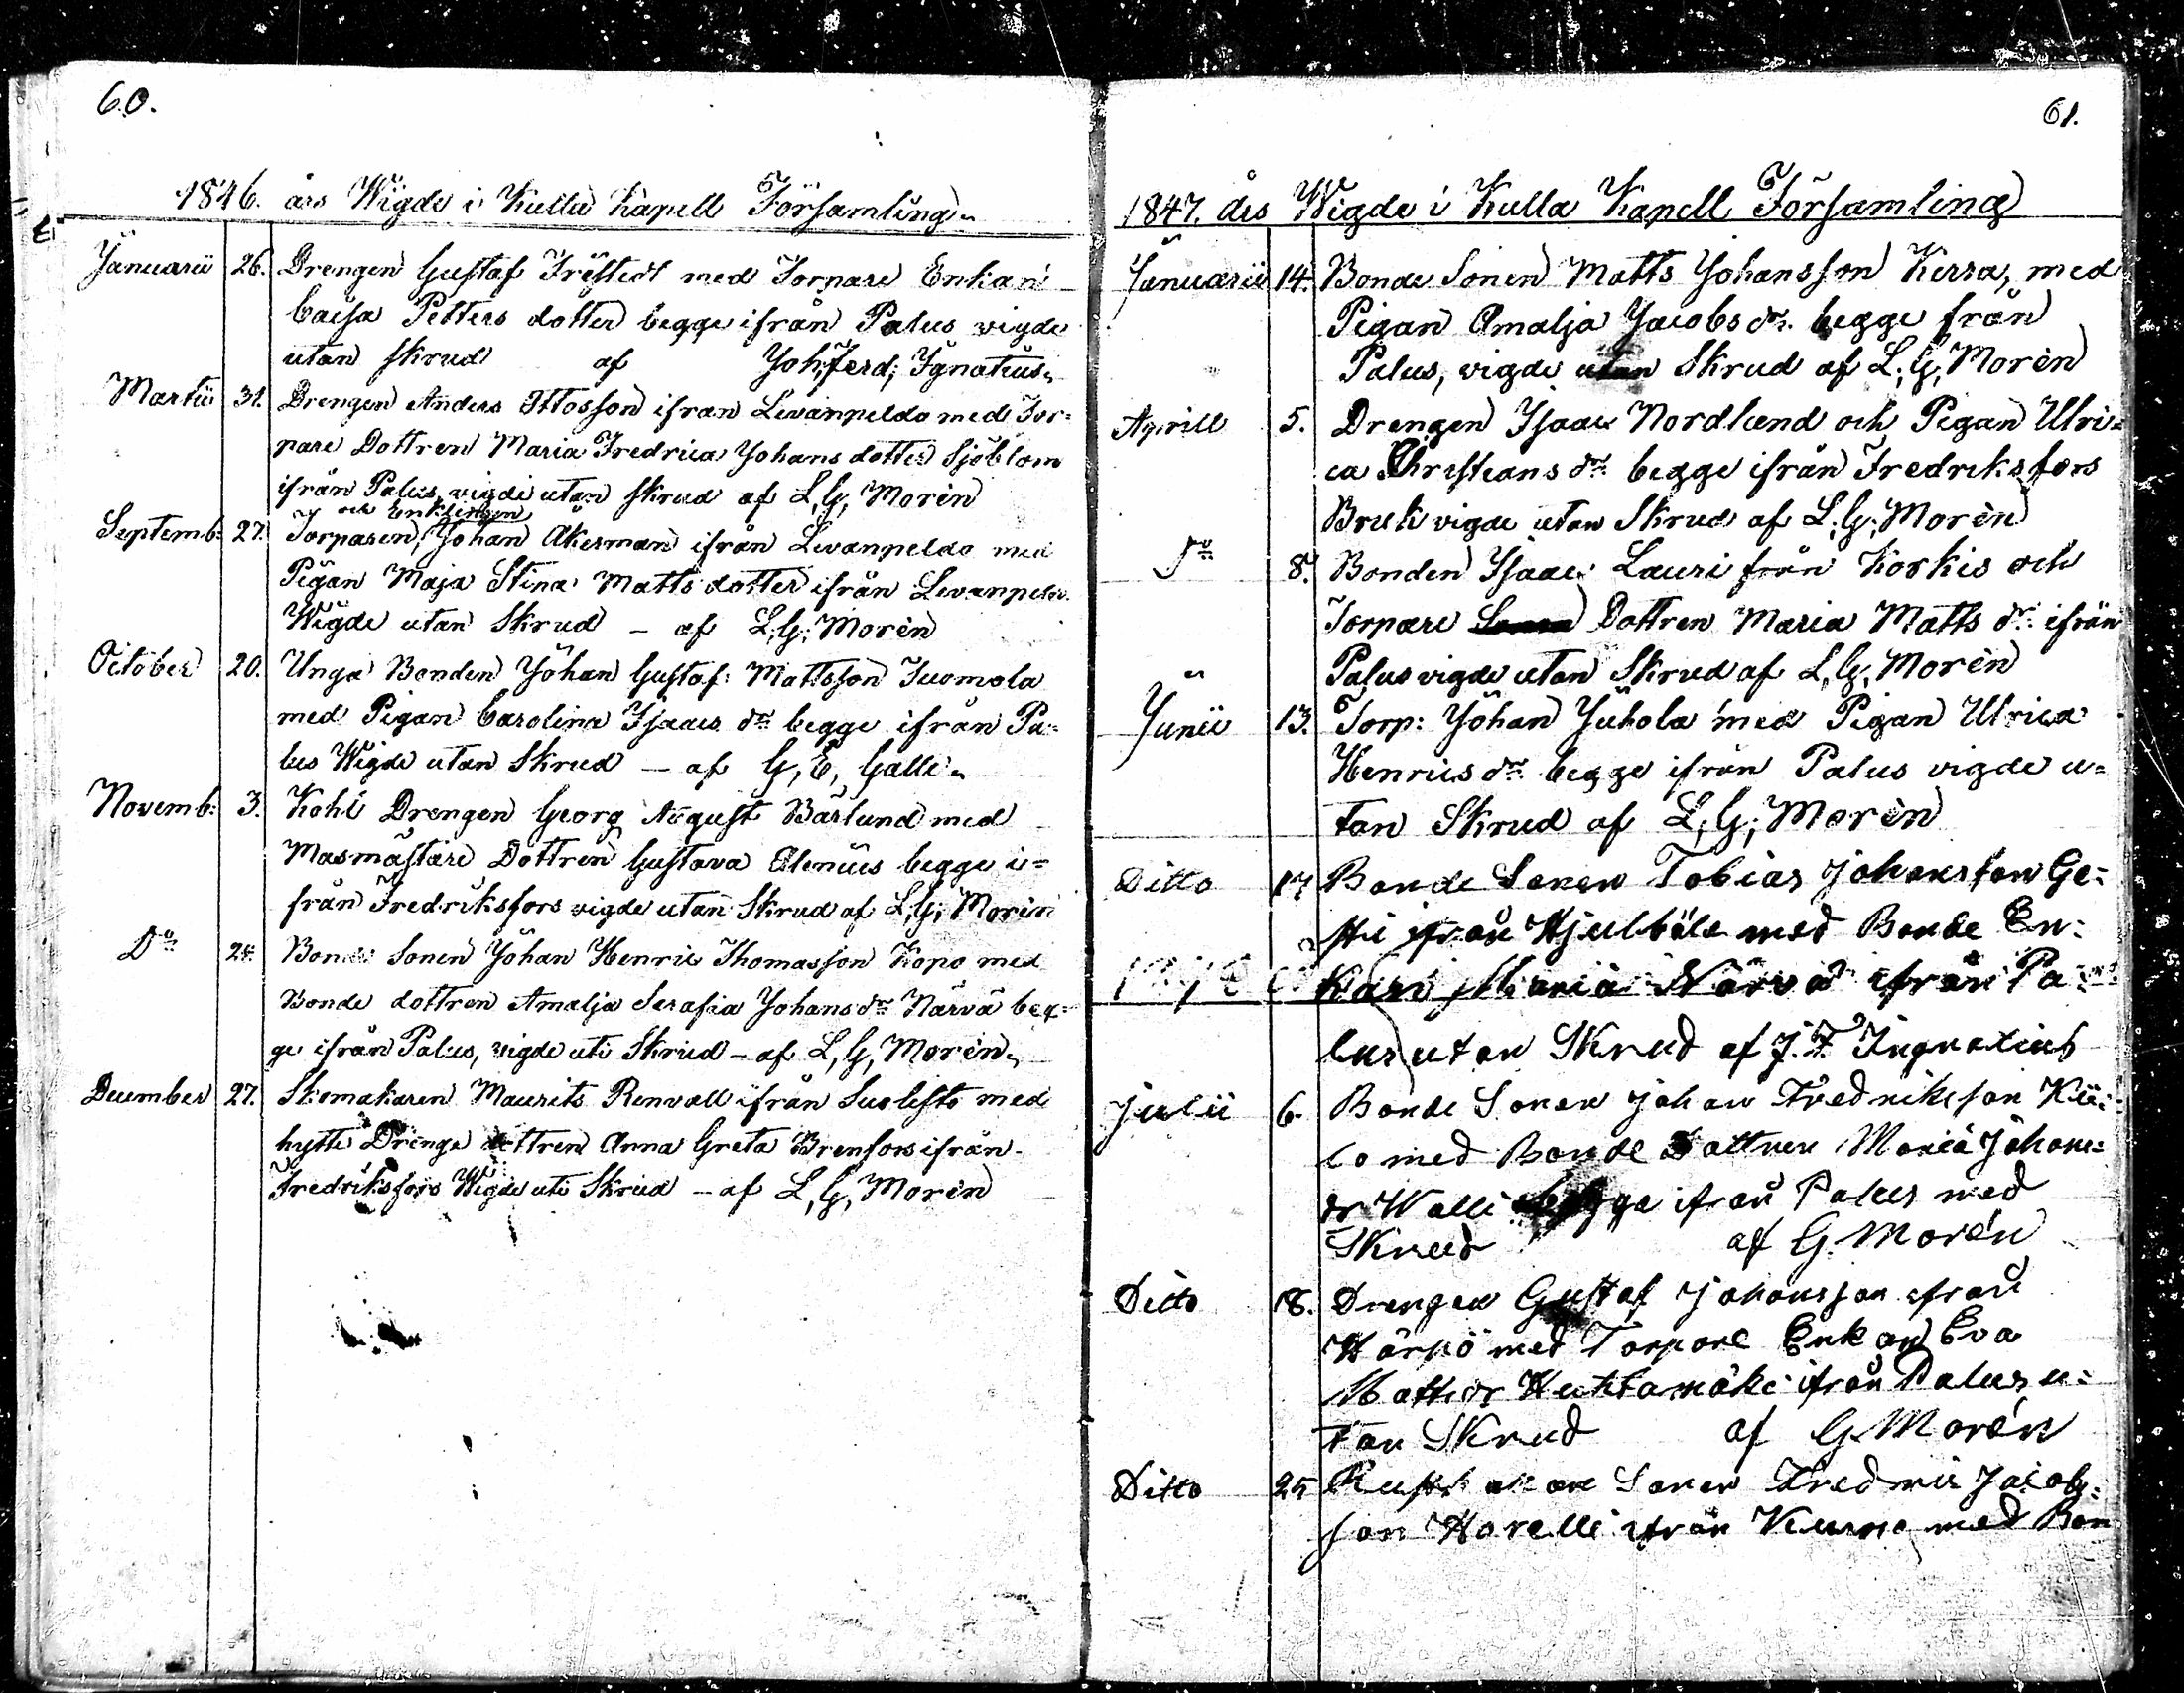 60.
1846. års Wigde i Kulla Kapell Församling„
Januarii 26. Drengen Gustaf Fristedt med Torpare Enkan
Caisa Petters dotter begge ifrån Palus vigde
utan skrud af Joh; Ferd; Ignatius„
Martii 31. Drengen Anders Ottosson ifran Levanpelda med Tor=
pare Dottren Maria Fredrica Johans dotter Sjöblom
ifrån Palus, vigde utan skrud af L, G; Morèn
och Enklingen
Septemb: 27. Torparen, Johan Åkerman ifrån Levanpelda med
Pigan Maja Stina Matts dotter ifrån Levanpelda
Wigde utan Skrud – af L; G; Morèn
October 20. Unga Bonden Johan Gustaf Mattsson Tuomola
med Pigan Carolina Isaacs dr begge ifrån Pa=
lus Wigde utan Skrud – af G, E, Galle„
Novemb: 3. Kohl Drengen Georg August Bärlund med
Masmästare Dottren Gustava Alenius begge i=
från Fredriksfors vigde utan Skrud af L; G; Morèn
Do 24. Bonde Sonen Johan Henric Thomasson Kopo med
Bonde dottren Amalja Serafia Johans dr Närvä beg=
ge ifrån Palus, vigde uti Skrud – af L, G, Morèn„
December 27. Skomakaren Maurits Renvall ifrån Suolisto med
hytte Drengs dottren Anna Greta Brenfors ifrån
Fredriksfors Wigde uti Skrud – af L, G, Morèn
61.
1847. års Wigde i Kulla Kapell Församling
Januarii 14. Bonde Sonen Matts Johansson Kerra, med
Pigan Amalja Jacobs dr begge från
Palus, vigde utan Skrud af L; G; Morèn
Aprill 5. Drengen Isaac Nordlund och Pigan Ulri=
ca Christians dr begge ifrån Fredriksfors
Bruk vigde utan Skrud af L; G; Morèn
Do 8. Bonden Isaac Lauri från Korkis och
Torpare Dottren Maria Matts dr ifrån
Palus vigde utan Skrud af L, G, Morèn
Junii 13. Torp: Johan Juhola med Pigan Ulrica
Henrics dr begge ifrån Palus vigde u=
tan Skrud af L; G; Morèn
Ditto 17 Bonde Sonen Tobias Johansson Ge=
sti ifrån Hjulböle med Bonde En=
kan Maria Närvä ifrån Pa=
lus utan Skrud af J. F. Ingnatius
Julii 6. Bonde Sonen Johan Fredriksson Kii=
lo med Bonde Dottren Maria Johans=
dr Walli begge ifrån Palus med
Skrud af G. Morén
Ditto 18. Drengen Gustaf Johansson ifrån
Härpö med Torpare Enkan Eva
Matts dr Huhtamäki ifrån Palus u=
tan Skrud af G. Morén
Ditto 25 Sonen Fredric Jacob=
son Horelli ifrån med Bon